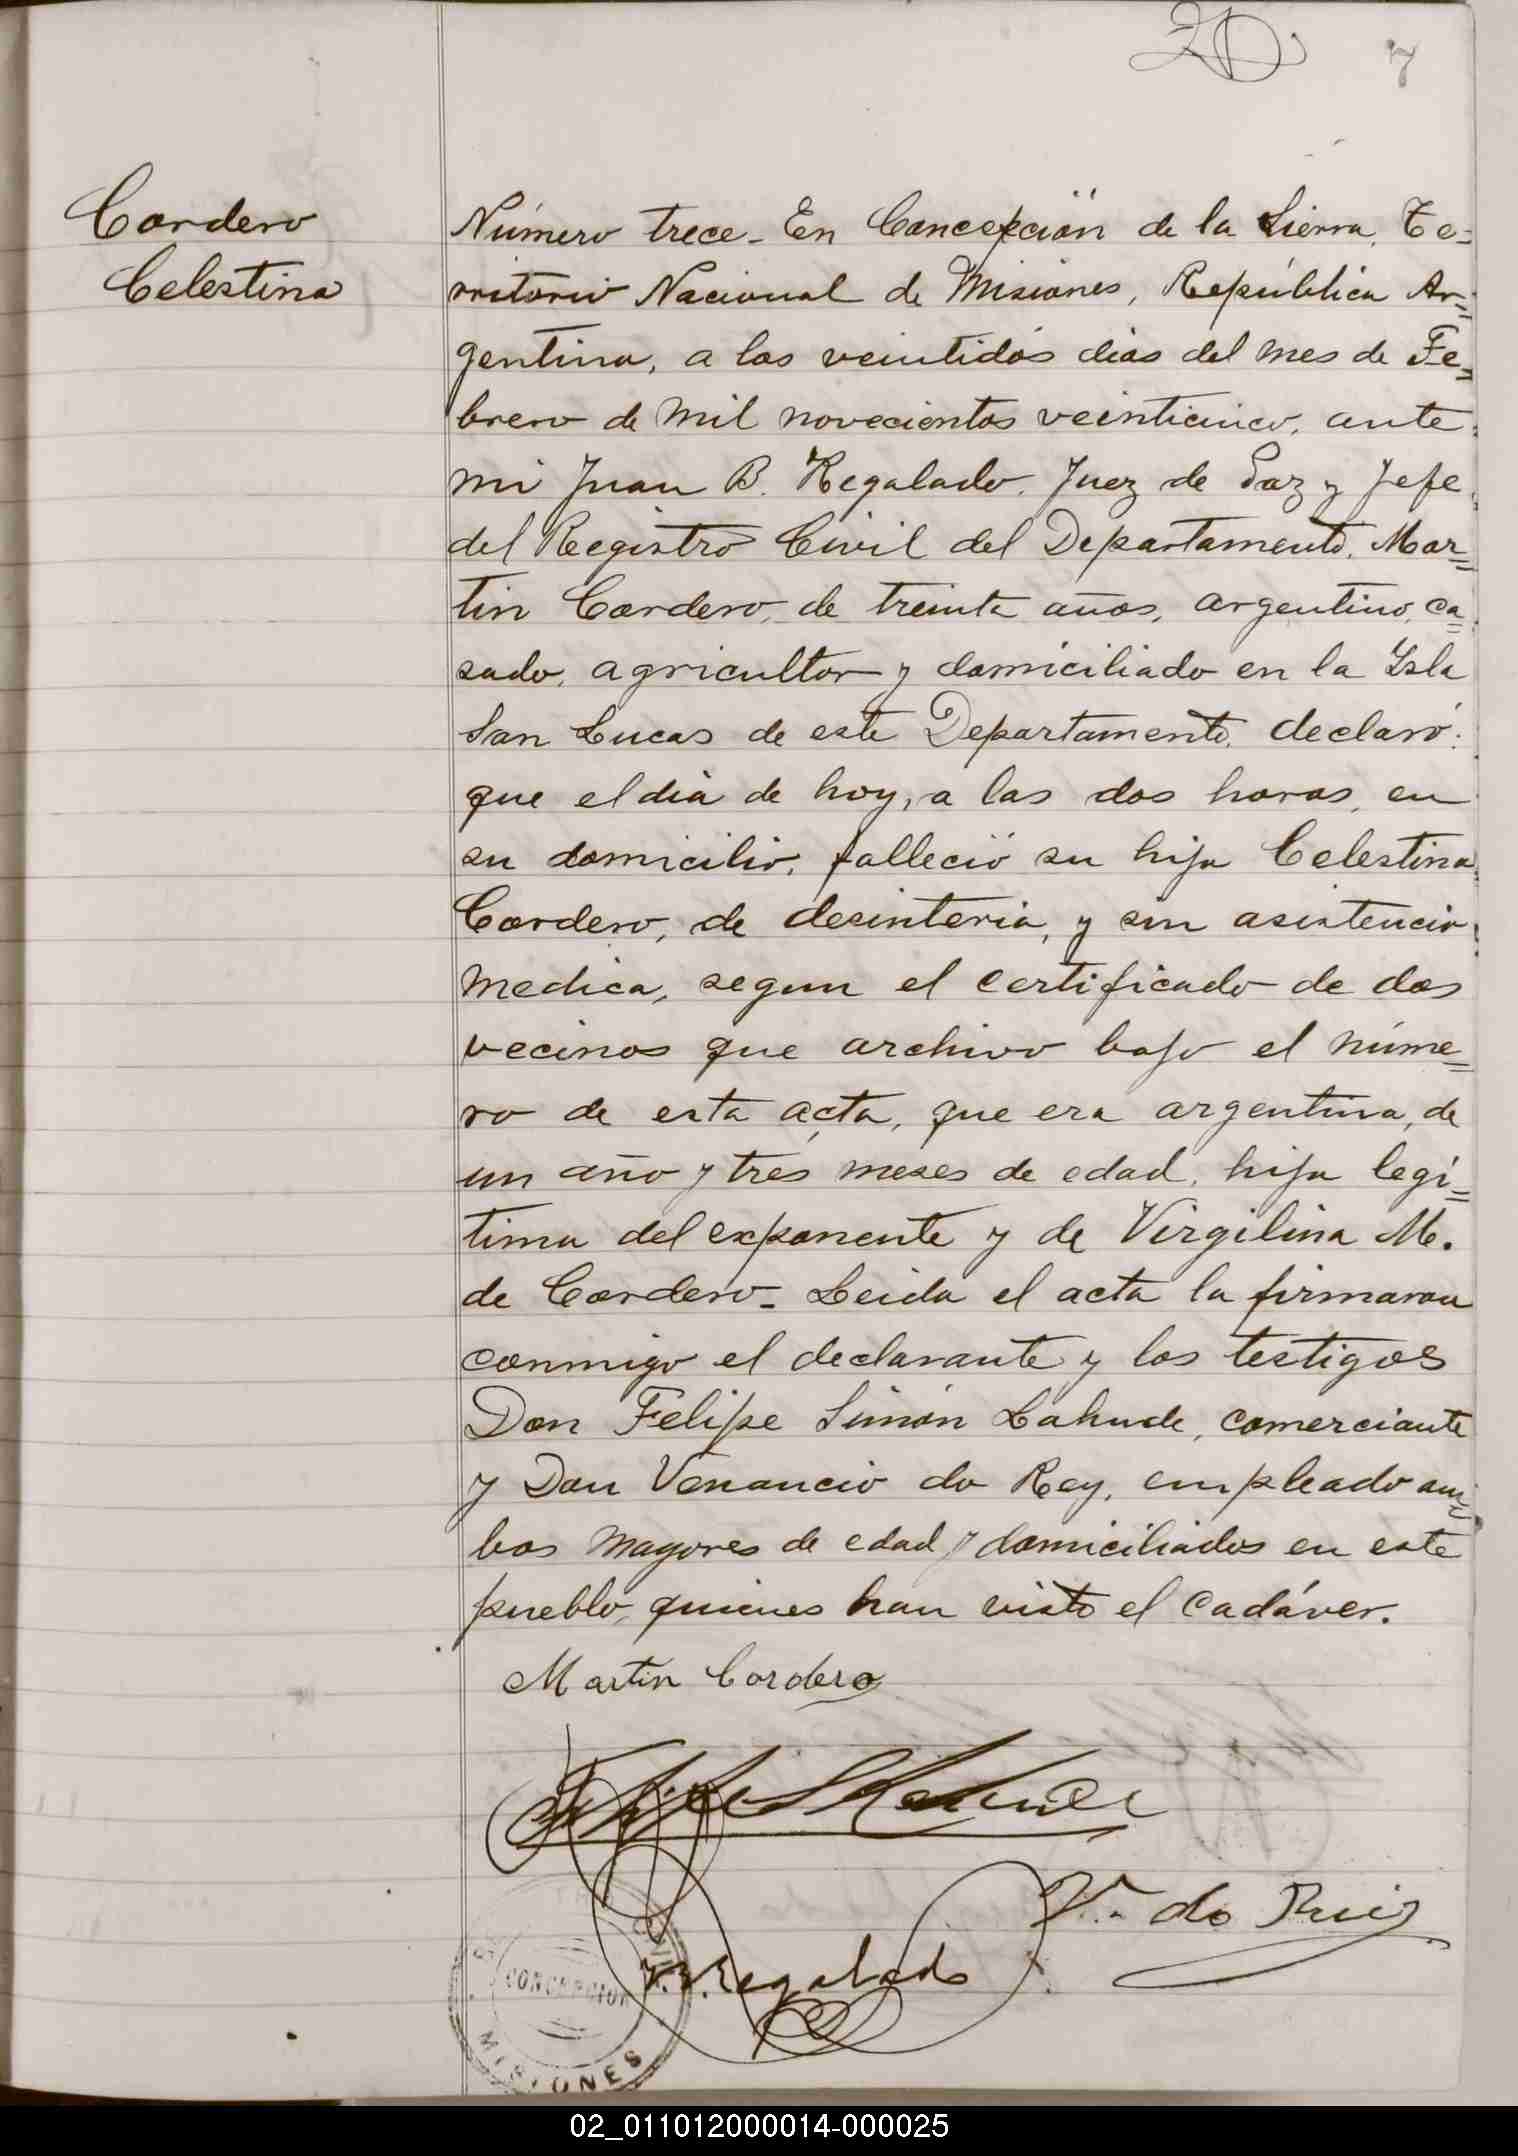 7
Cordero
Celestina
Número trece_ En Concepción de la Sierra, Te=
rritorio Nacional de Misiones, República Ar=
gentina, a los veintidós dias del mes de Fe=
brero de mil novecientos veinticinco, ante
mi Juan B. Regalado, Juez de Paz y Jefe
del Registro Civil del Departamento, Mar=
tin Cordero, de treinta años, argentino, ca=
sado, agricultor y domiciliado en la Isla
San Lucas de este Departamento, declaró:
que el dia de hoy, a las dos horas, en
su domicilio, falleció su hija Celestina
Cordero, de desinteria, y sin asistencia
medica, segun el certificado de dos
vecinos que archivo bajo el núme=
ro de esta acta, que era argentina, de
un año y tres meses de edad, hija legi=
tima del exponente y de Virgilina M.
de Cordero_ Leida el acta la firmaron
conmigo el declarante y los testigos
Don Felipe Simón Lahude, comerciante
y Don Venancio do Rey, empleado am=
bos mayores de edad y domiciliados en este
pueblo, quienes han visto el cadáver.
Martin Cordero
Felipe S Lahude
V. do Rey
J.B. Regalado
CONCEPCION
MISIONES
02_011012000014-000025